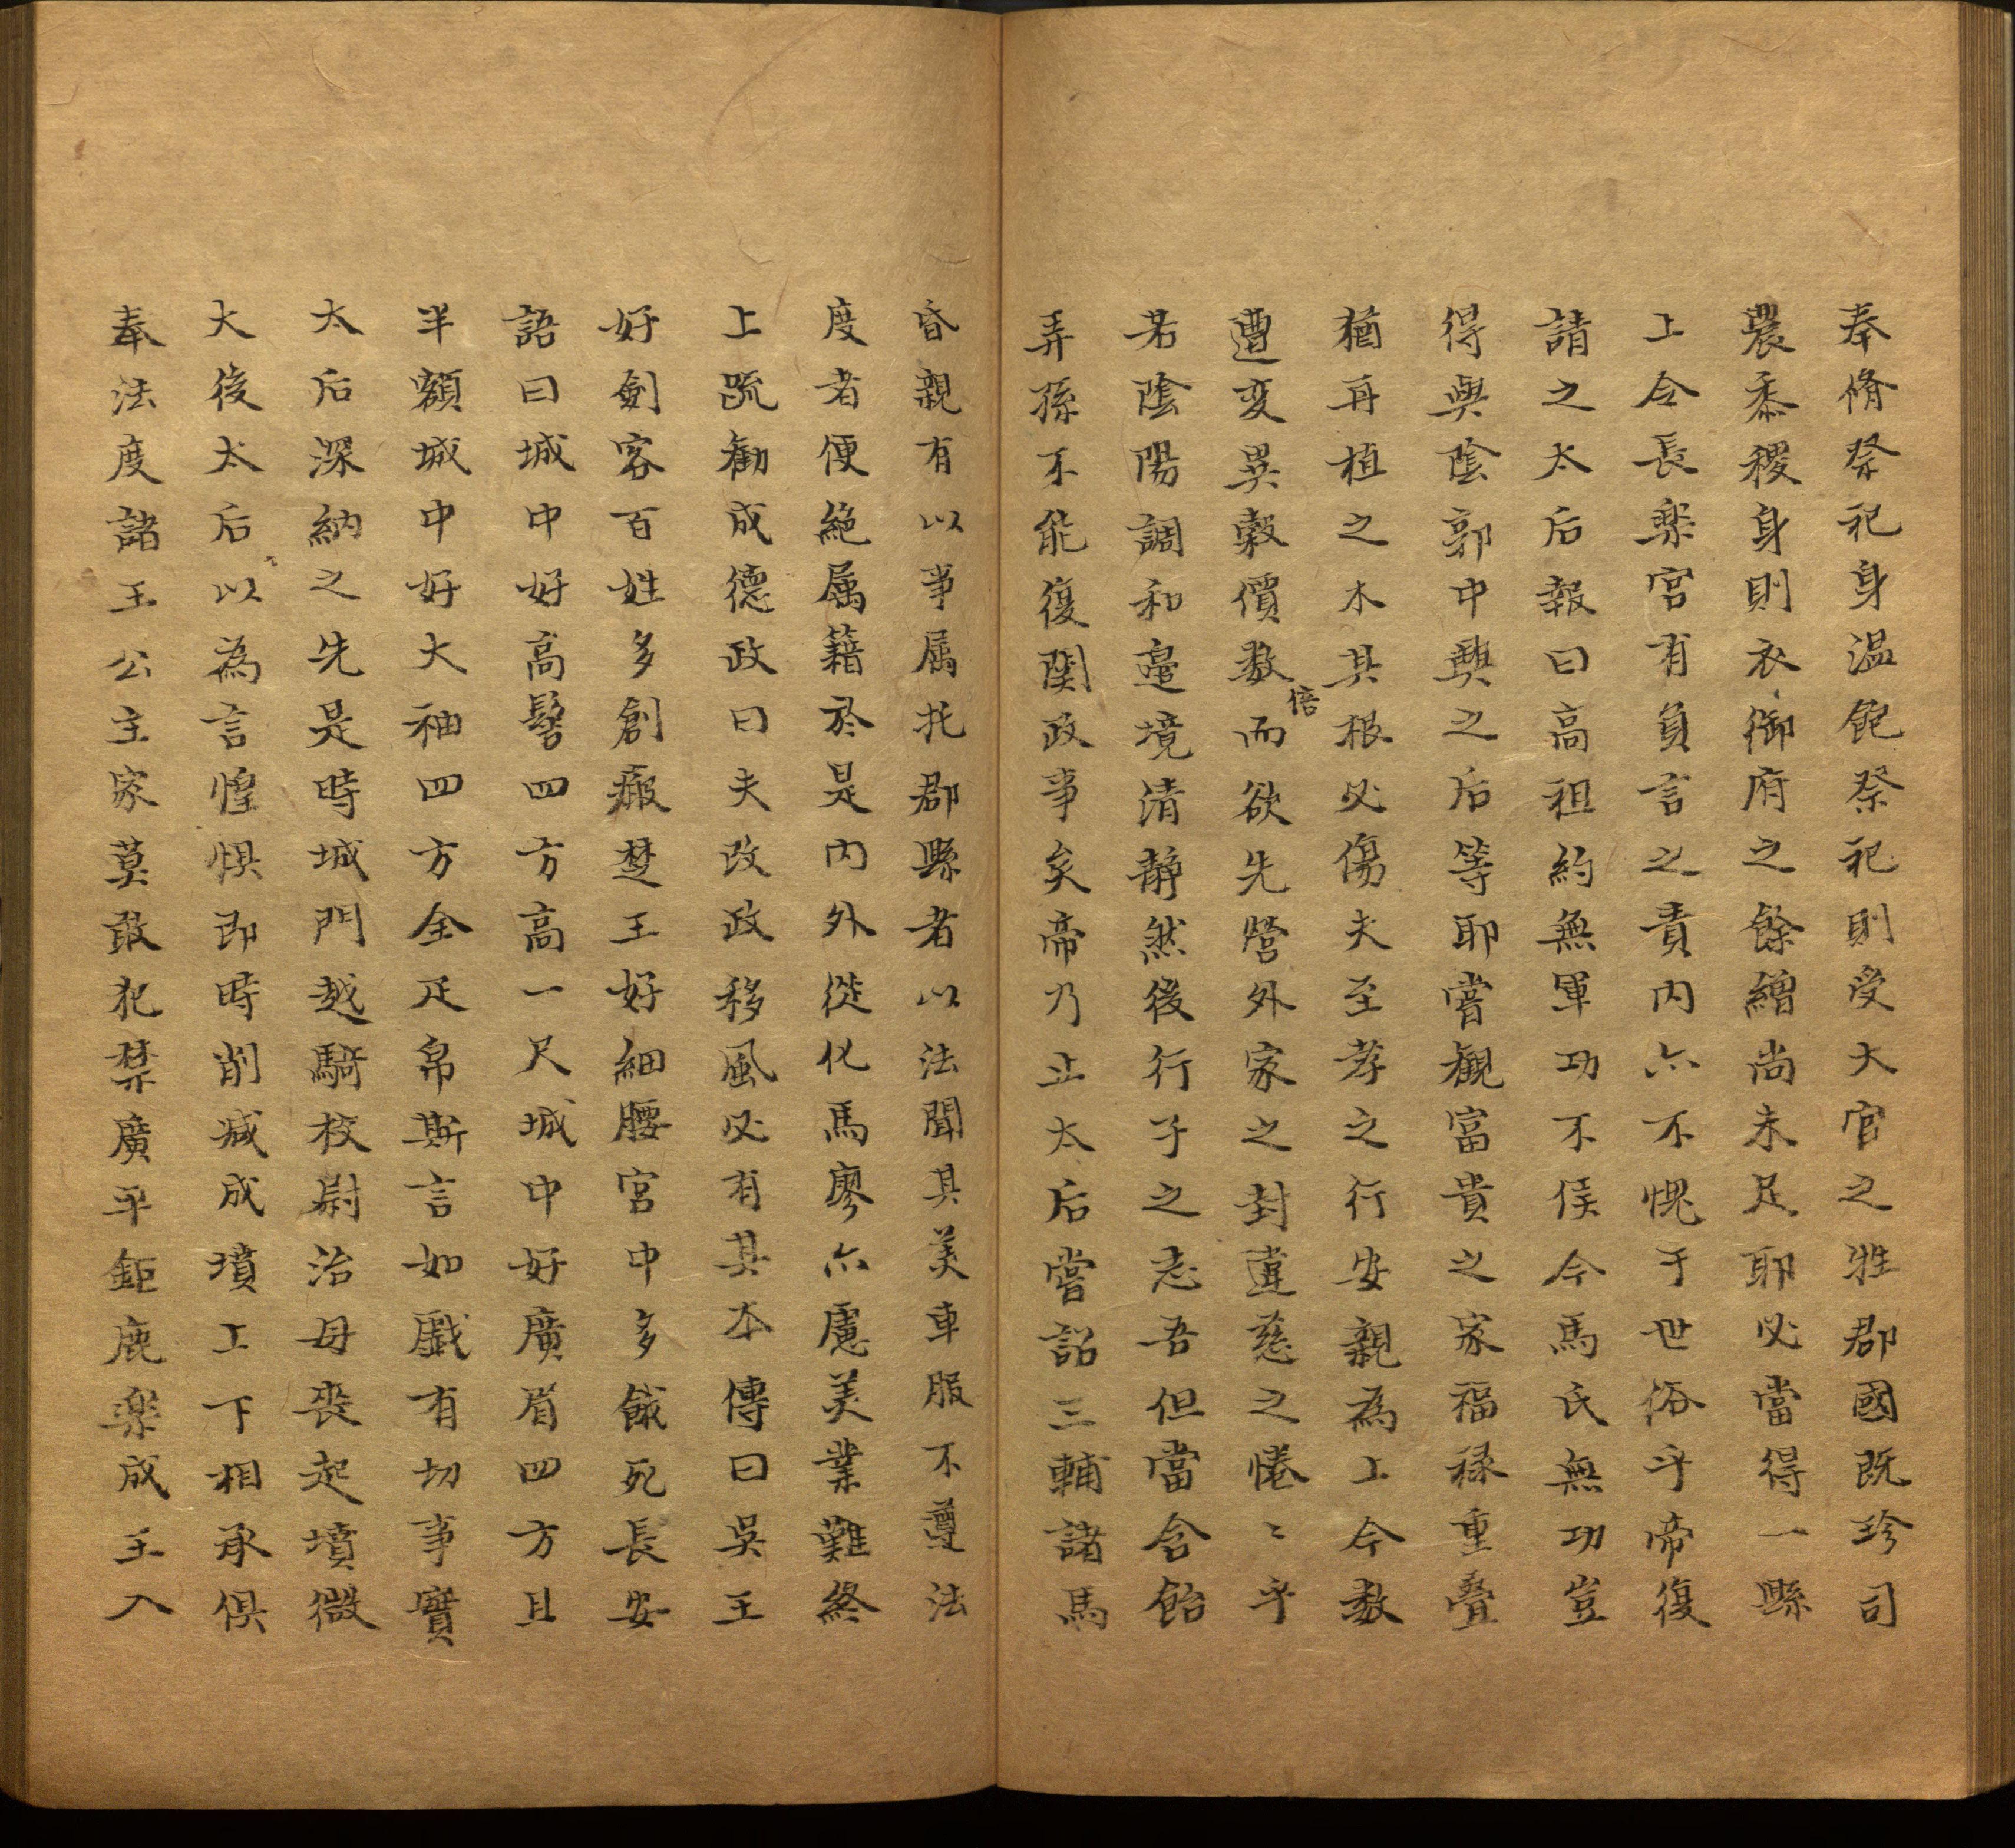 奉脩祭祀身温飽祭祀則受大官之牲郡國既珍司
農黍稷身則衣御府之餘繒尚未足耶必當得一縣
上令長楽宮有負言之責内亦不愧于世俗乎帝復
請之太后報曰高祖約無軍功不侯今馬氏無功豈
得與陰郭中興之后等耶嘗觀富貴之家福禄重疊
猶再植之木其根必傷夫至孝之行安親為上今数
遭变異穀價数倍而欲先營外家之封違慈之惓〻乎
若陰陽調和邉境清静然後行子之志吾但當含飴
弄孫不能復関政事矣帝乃止太后嘗詔三輔諸馬
昏親有以事属托郡縣者以法聞其美車服不遵法
度者便絶属籍於是内外從化馬廖亦慮美業難終
上疏勸成德政曰夫改政移風必有其本傳曰吳王
好劍客百姓多創瘢楚王好細腰宮中多餓死長安
語曰城中好高髻四方高一尺城中好廣眉四方且
半額城中好大袖四方全疋帛斯言如戲有切事實
太后深納之先是時城門越騎校尉治母丧起墳微
大後太后以為言惶惧即時削减成墳上下相承俱
奉法度諸王公主家莫敢犯禁廣平鉅鹿楽成王入